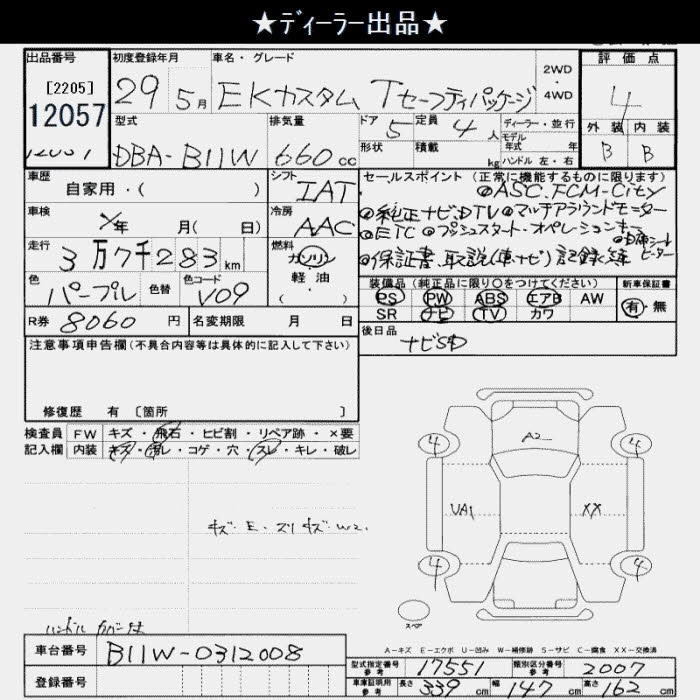 ★ディーラー出品★
出品番号
[2205]
12057
初度登録年月
29 5月
車名・グレード
EKカスタム Tセーフティパッケージ
2WD
・
4WD
評価点
4
外装 内装
B B
型式
DBA-B11W
排気量
660cc
ドア 5
定員 4人
ディーラー・並行
形状
積載 kg
モデル年式 年
ハンドル 左・右
車歴
自家用・( )
シフト
IAT
車検
年 月( 日)
冷房
AAC
走行
3万7千283km
燃料
ガソリン
軽油
・
( )
色
パープル
色替
色コード
V09
R券 8060 円
名変期限 月 日
セールスポイント (正常に機能するものに限ります)
◎ASC.FCM-City
◎純正ナビ.DTV◎マルチアラウンドモニター
◎ETC ◎プッシュスタート・オペレーションキー
◎保証書.取説(車.ナビ) 記録簿
ヒーター
装備品(純正品に限り○をつけてください)
PS PW ABS エアB AW
SR ナビ TV カワ
新車保証書
有・無
後日品
ナビSD
注意事項申告欄(不具合内容等は具体的に記入して下さい)
修復歴 有 [箇所 ]
検査員
記入欄
FW キズ・飛石・ヒビ割・リペア跡・×要
内装 キズ・汚レ・コゲ・穴・スレ・キレ・破レ
キズ.E.スリキズ.W2.
ハンドル カバー付
A2
4 4
UA1 XX
4 4
スペア
A-キズ E-エクボ U-凹み W-補修跡 S-サビ C-腐食 XX-交換済
車台番号 B11W-0312008
登録番号
型式指定番号
参考
17551
類別区分番号
参考
2007
車庫証明用
参考
長さ 339cm 幅 147cm 高さ 162cm